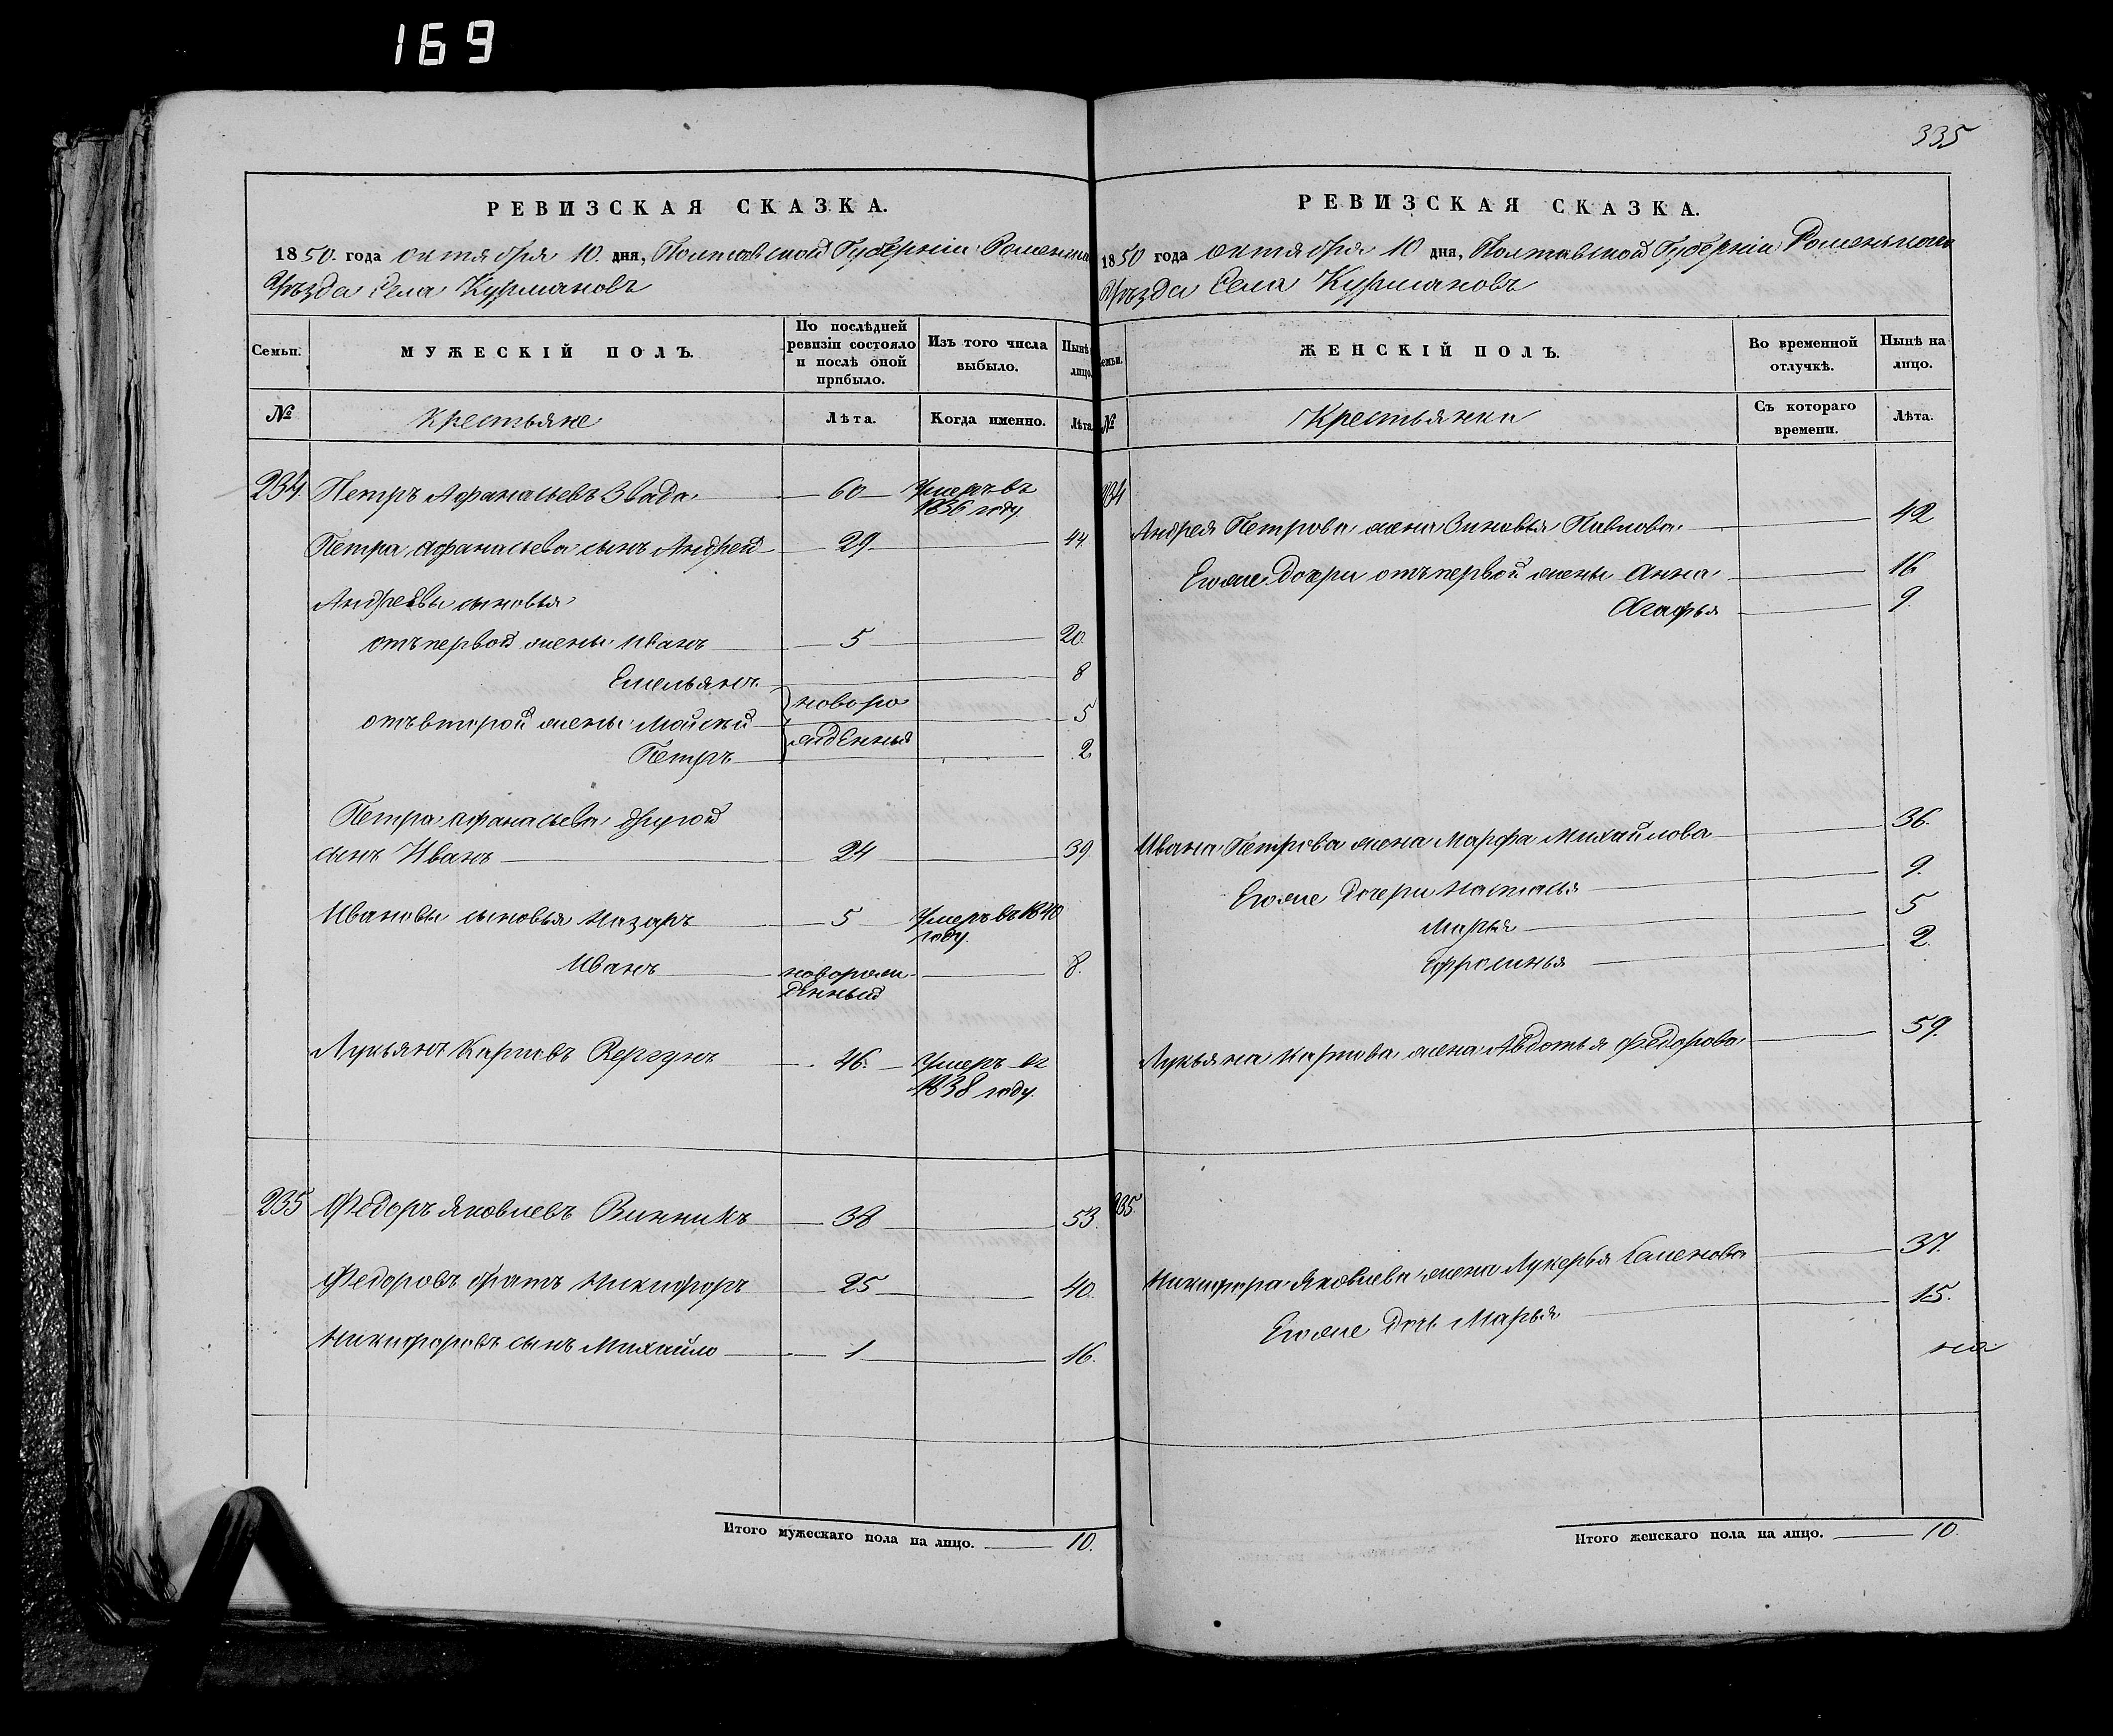 169
335
РЕВИЗСКАЯ СКАЗКА.
1850. года октября 10. дня, Полтавской Губерніи Роменскаго
Уѣзда Села Курмановъ
Семьи.
МУЖЕСКІЙ ПОЛЪ.
По послѣдней ревизіи состояло и послѣ оной прибыло.
Изъ того числа выбыло.
Нынѣ лицо.
№
Крестьяне
Лѣта.
Когда именно.
Лѣта.
234. Петръ Афанасьевъ Звада 60 Умеръ въ
1836 году.
Петра Афанасьева сынъ Андрей 29 44.
Андреевы сыновья
отъ первой жены Иванъ 5 20.
Емельянъ 8
новоро
отъ второй жены Мойсѣй 5
жденные
Петръ 2
Петра Афанасьева другой
сынъ Иванъ 24 39
Ивановы сыновья Назаръ 5 Умеръ въ 1840
году.
Иванъ новорож- 8.
денный
Лукьянъ Карповъ 46. Умеръ въ
1838 году.
235 Федоръ Яковлевъ Винникъ 38 53.
Федоровъ братъ Никифоръ 25 40.
Никифоровъ сынъ Михайло 1 16.
Итого мужескаго пола на лицо. 10.
РЕВИЗСКАЯ СКАЗКА.
1850 года октября 10 дня, Полтавской Губерніи Роменскаго
Уѣзда Села Курмановъ
Семьи.
ЖЕНСКІЙ ПОЛЪ.
Во временной отлучкѣ.
Нынѣ на лицо.
№
Крестьянки
Съ котораго времени.
Лѣта.
234
Андрея Петрова жена Зиновья Павлова 42
Его же дочери отъ первой жены Анна 16
Агафья 9.
Ивана Петрова жена Марфа Михайлова 36.
Его же дочери Настасья 9.
Марья 5
Ефросинья 2.
Лукьяна Карпова жена Авдотья Федорова 59.
235.
Никифора Яковлева жена Лукерья Семенова 37.
Его же дочь Марья 15.
на
Итого женскаго пола на лицо. 10.